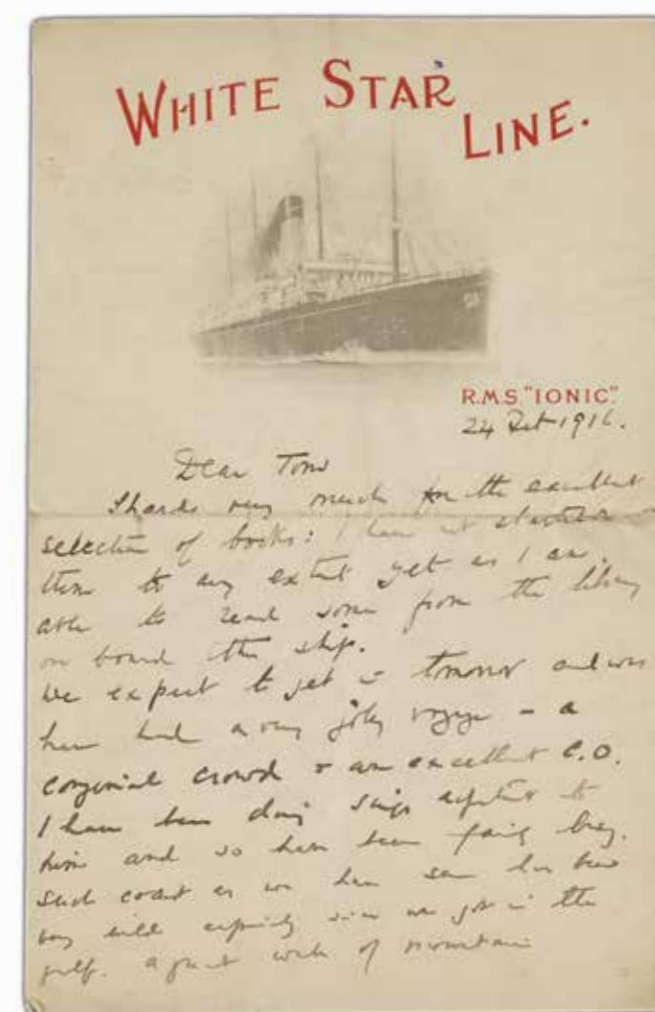 WHITE STAR
LINE.
R.M.S. "IONIC".
24 Feb 1916.
Dear Tom
Thanks very much for the excellent
selection of books: I have not
them to any extent yet as I am
able to read some from the library
on board the ship.
We expect to get in tomorrow and we
have had a very jolly voyage – a
congenial crowd & an excellent C.O.
I have been doing ship's adjutant to
him and so have been fairly busy.
Such coast as we have seen has been
very wild especially since we got in the
gulf. a great wall of mountain